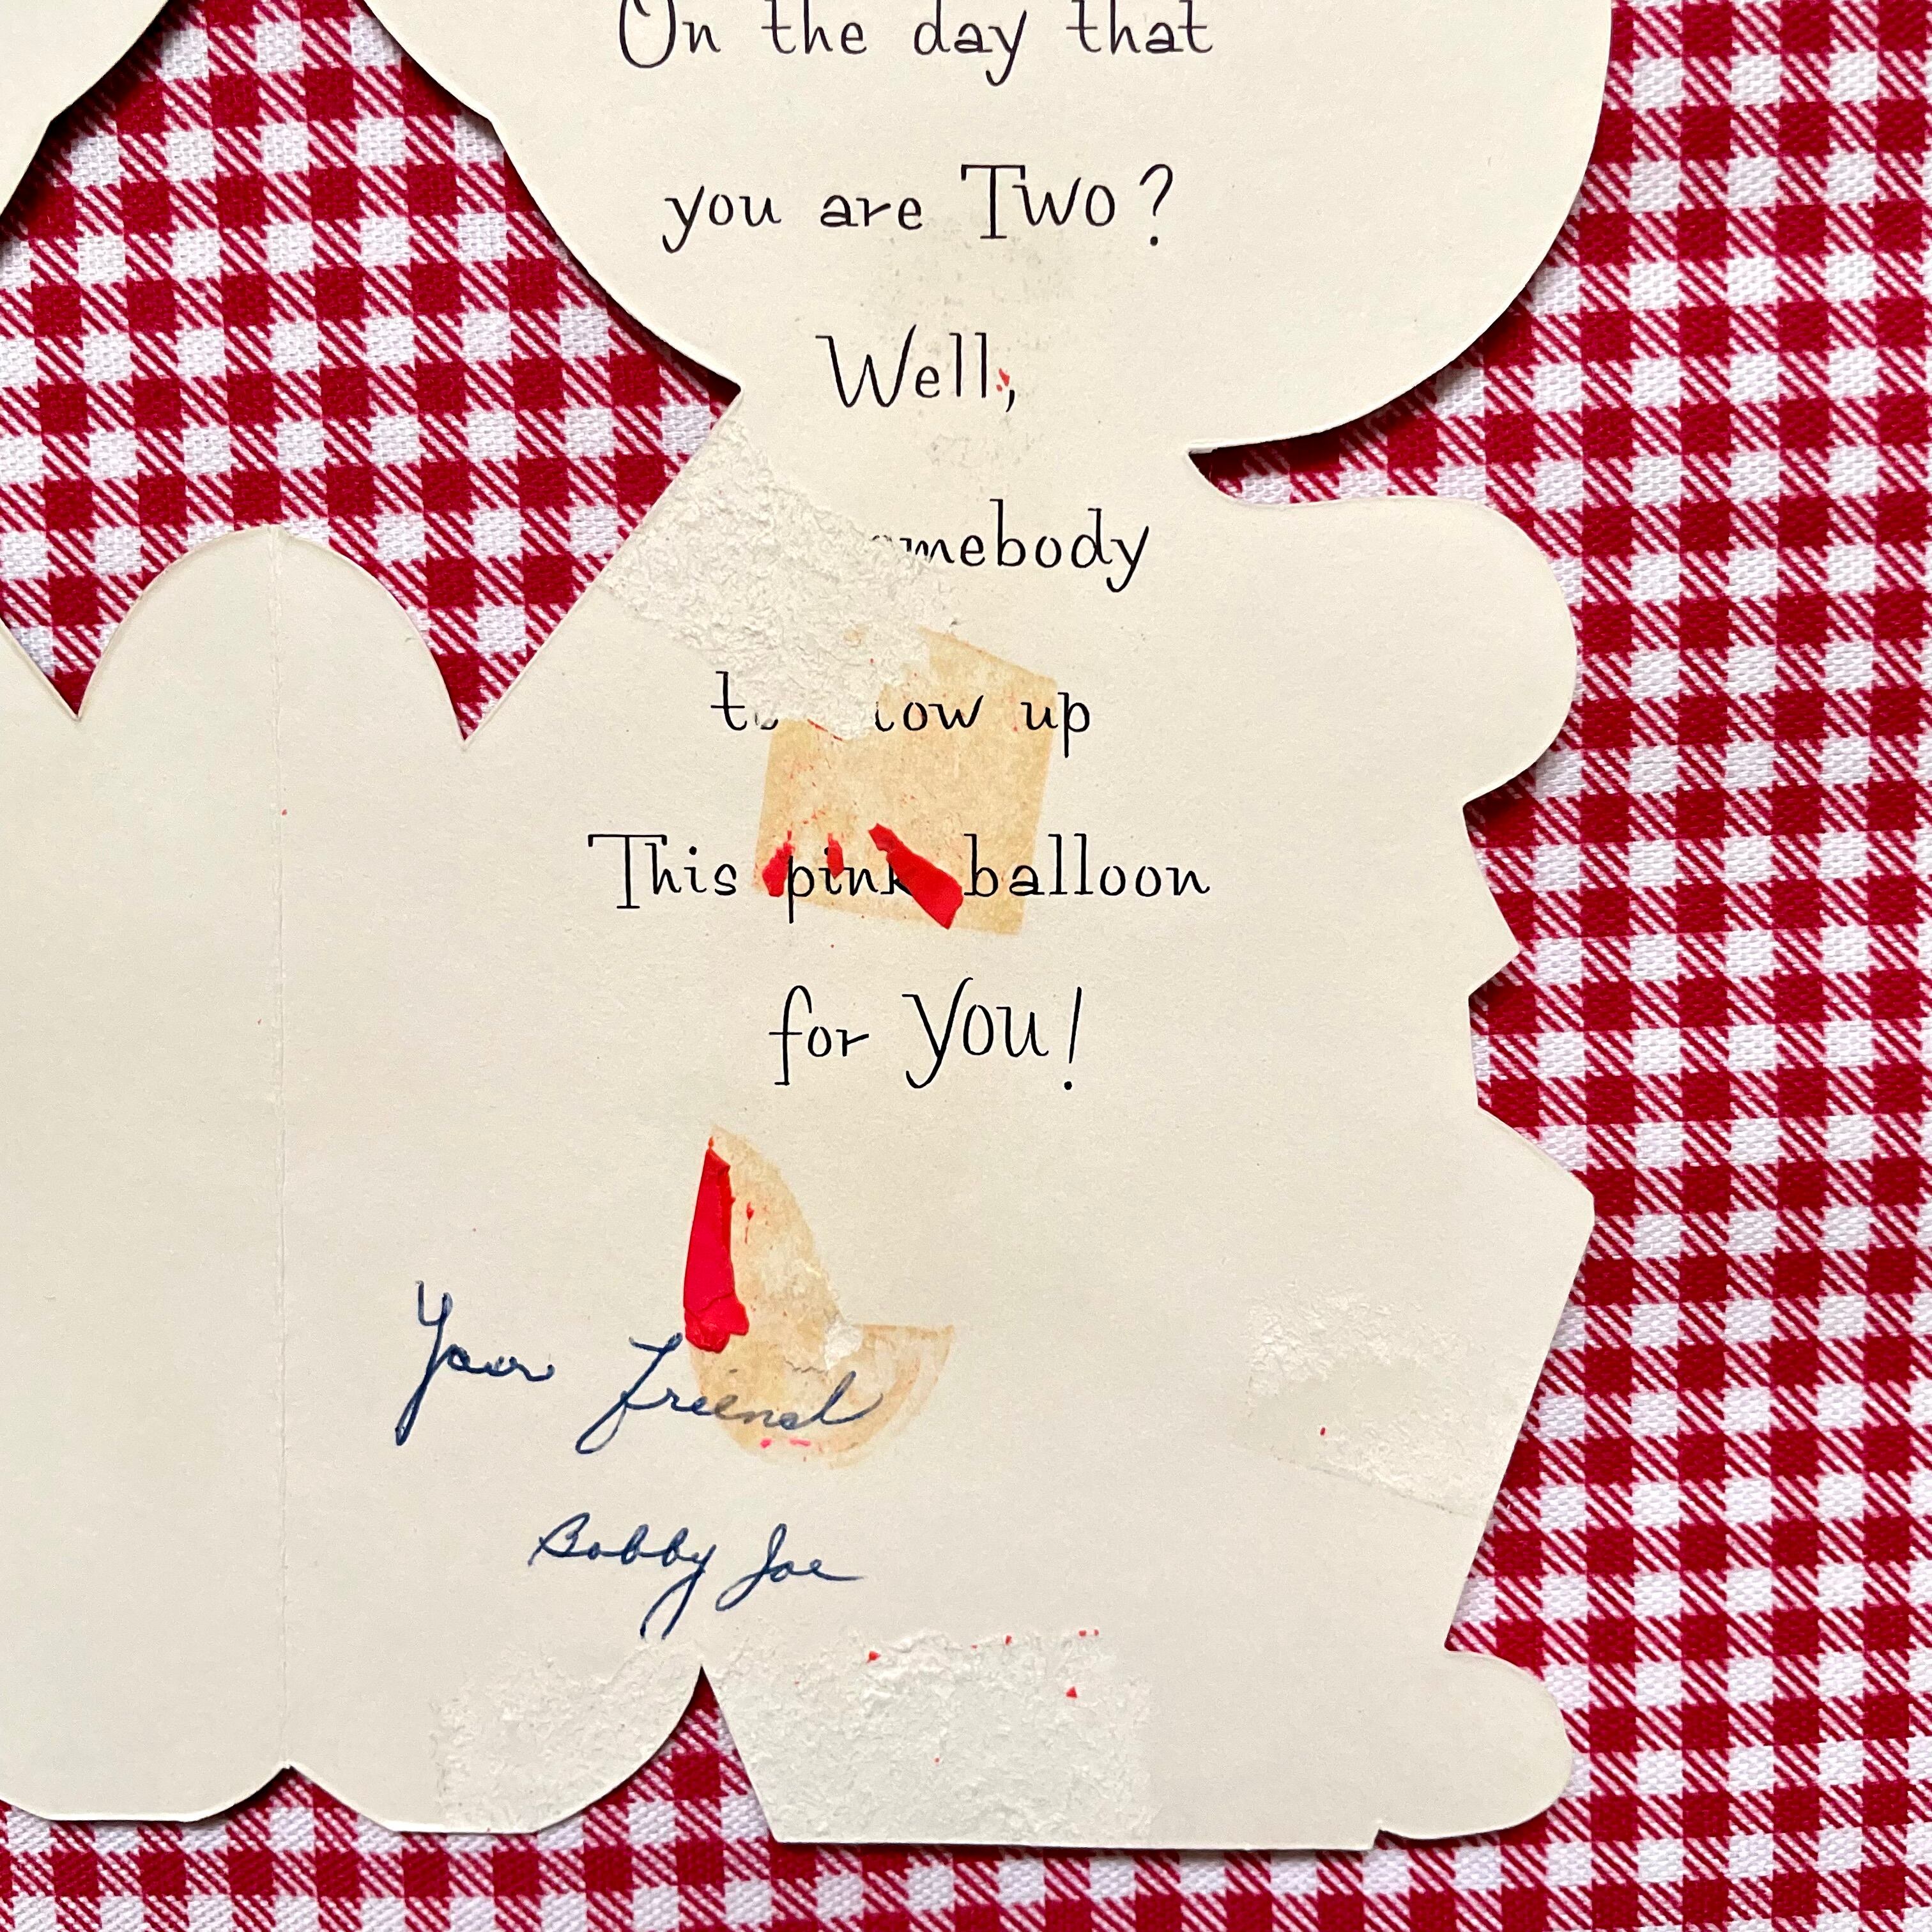 On the day that
you are Two?
Well,
up
This pink balloon
for YOU!
Your friend
Bobby Joe